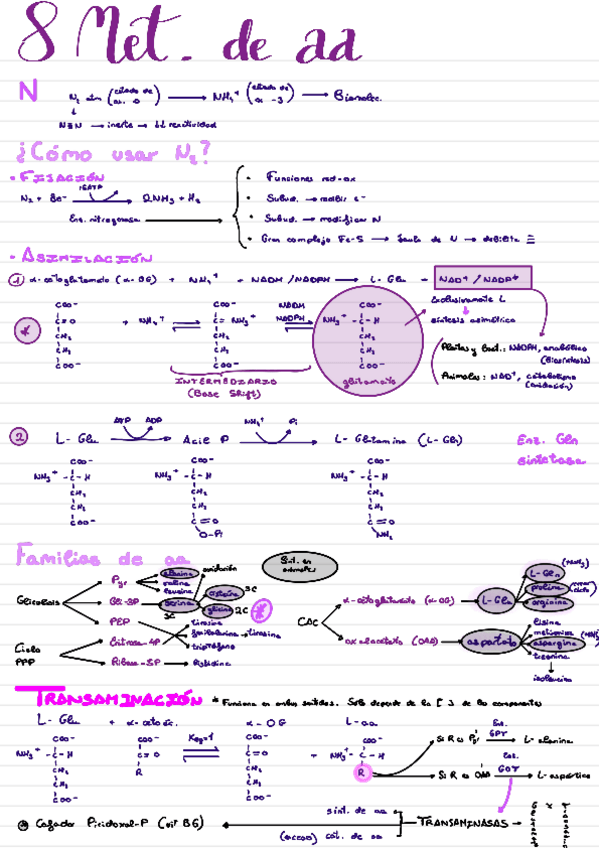 8 Met. de aa
N
N₂ atm (estado de ox. 0) → NH₄⁺ (estado de ox -3) → Biomolec.
N≡N → inerte → ↓↓ reactividad
¿Cómo usar N₂?
· FIJACIÓN
16ATP
N₂ + 8e⁻ → 2NH₃ + H₂
Enz. nitrogenasa
· Funciones red-ox
· Subud. → recibir e⁻
· Subud. → modifican N
· Gran complejo Fe-S → Jaula de N → debilita ≡
· ASIMILACIÓN
1 α-cetoglutarato (α-OG) + NH₄⁺ + NADH/NADPH → L-Glu + NAD⁺/NADP⁺
Exclusivamente L
síntesis asimétrica
COO⁻ COO⁻ COO⁻
C=O + NH₄⁺ C=NH₃⁺ NADH NADPH NH₃⁺-C-H
CH₂ CH₂ CH₂
CH₂ CH₂ CH₂
COO⁻ COO⁻ COO⁻
Plantas y bact.: NADPH, anabolismo (Biosíntesis)
Animales: NAD⁺, catabolismo (oxidación)
INTERMEDIARIO
(Base Shiff)
glutamato
2 L-Glu ATP ADP Acil P NH₄⁺ Pi L-Glutamina (L-Gln)
Enz. Gln
sintetasa
COO⁻ COO⁻ COO⁻
NH₃⁺-C-H NH₃⁺-C-H NH₃⁺-C-H
CH₂ CH₂ CH₂
CH₂ CH₂ CH₂
COO⁻ C=O C=O
O-Pi NH₂
Familias de aa
Sint. en animales
Glicolisis
Pyr
alanina
valina
leucina
Gli-3P
serina
3C
cisteína
3C
glicina
2C
PEP
Ciclo PPP
Eritrosa-4P
tirosina
fenilalanina → tirosina
triptófano
Ribosa-5P → Histidina
CAC
α-cetoglutarato (α-OG) → L-Glu
L-Gln
(NH₄⁺)
prolina
arginina
oxalacetato (OAA) → aspartato
lisina
metionina
aspargina
treonina
isoleucina
TRANSAMINACIÓN * Funciona en ambos sentidos. Solo depende de la [ ] de los componentes
L-Glu + α-cetoác. Keq=1 α-OG L-aa
COO⁻ COO⁻ COO⁻ COO⁻
NH₃⁺-C-H C=O C=O + NH₃⁺-C-H
CH₂ R CH₂ R
CH₂ CH₂
COO⁻ COO⁻
Si R es Pyr GPT L-alanina
Si R es OAA GOT L-aspártico
Cofactor Piridoxal-P (vit B6)
sínt. de aa
cat. de aa
TRANSAMINASAS →
G x T